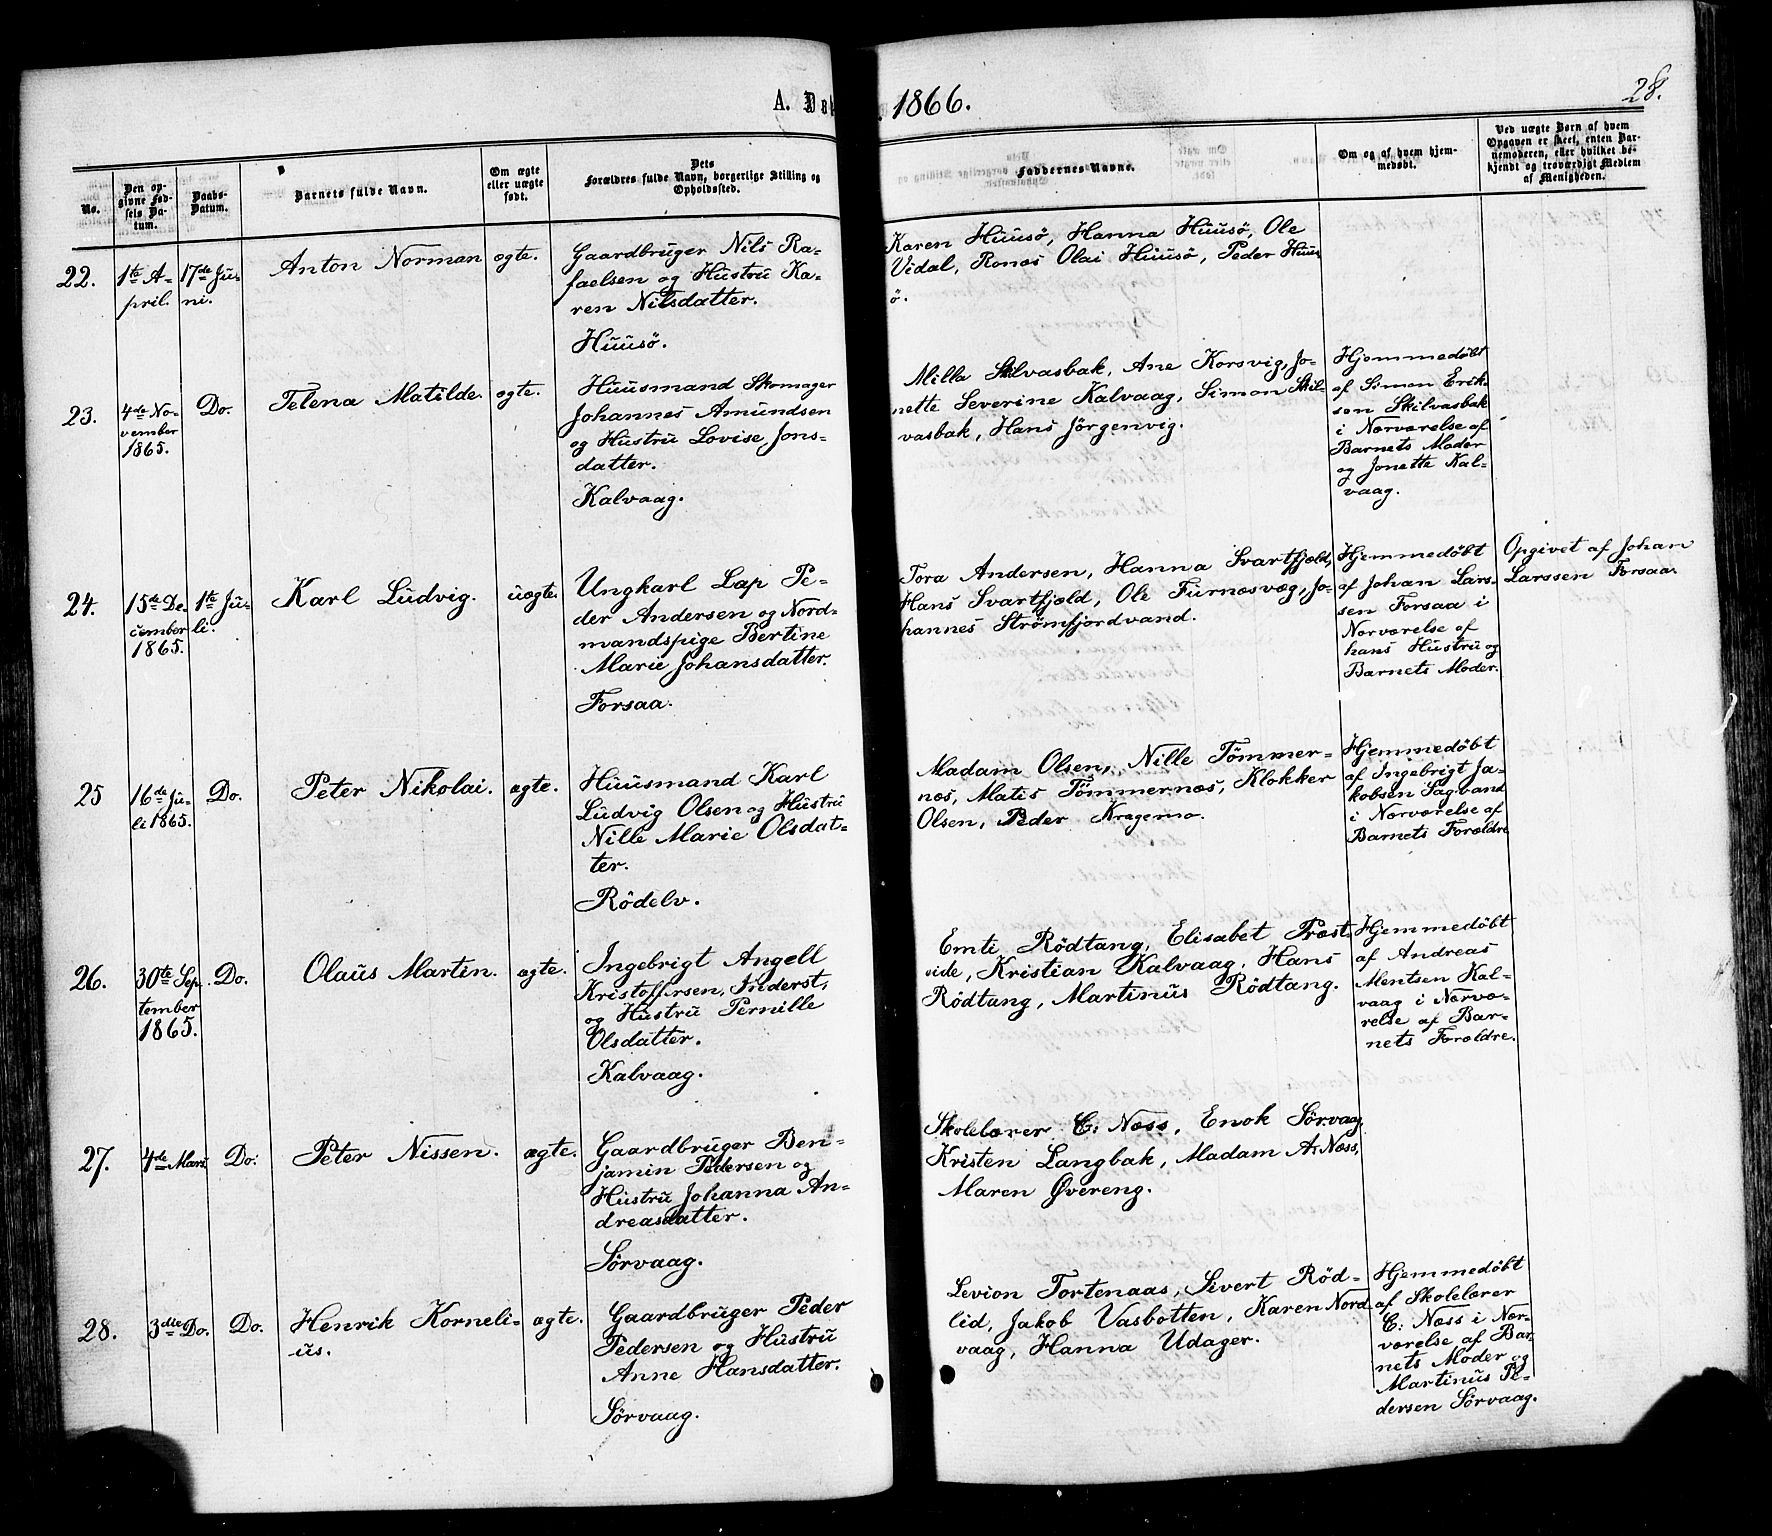 A. Døb
1866.
28.
No.
Den op-
givne Fød-
sels Da-
tum.
Daabs-
Datum.
Barnets fulde Navn.
Om ægte
eller uægte
født.
Dets
Forældres fulde Navn, borgerlige Stilling og
Opholdssted.
Faddernes Navne.
Om og af hvem hjem-
medøbt.
Ved uægte Børn af hvem
Opgaven er skeet, enten Bar-
nemoderen, eller hvilket be-
kjendt og troværdigt Medlem
af Menigheden.
22.
1te A-
pril.
17de Ju-
ni.
Anton Norman
ægte.
Gaardbruger Nils Ra-
faelsen og Hustru Ka-
ren Nilsdatter.
Huusö.
Karen Huusö, Hanna Huusö, Ole
Vidal, Ronæs Olai Huusö, Peder Huus
ö.
23.
4de No-
vember
1865.
Do.
Telena Matilde.
ægte.
Huusmand Skomager
Johannes Amundsen
og Hustru Lovise Jons-
datter.
Kalvaag.
Milla Skilvasbak, Ane Korsvig, Jo-
nette Severine Kalvaag, Simon Skil-
vasbak, Hans Jörgenvig.
Hjemmedøbt
af Simon Erik-
sen Skilvasbak
i Nærværelse af
Barnets Moder
og Jonette Kal-
vaag.
24.
15de De-
cember
1865.
1te Ju-
li.
Karl Ludvig.
uægte.
Ungkarl Lap Pe-
der Andersen og Nord-
mandspige Bertine
Marie Johansdatter.
Forsaa.
Tora Andersen, Hanna Svartfjæld,
Hans Svartfjæld, Ole Furnæsvæg, Jo-
hannes Strömfjordvand.
Hjemmedøbt
af Johan Lars-
sen Forsaa i
Nærværelse af
hans Hustru og
Barnets Moder.
Opgivet af Johan
Larssen Forsaa.
25
16de Ju-
li 1865.
Do.
Peter Nikolai.
ægte.
Huusmand Karl
Ludvig Olsen og Hustru
Nille Marie Olsdat-
ter.
Rödelv.
Madam Olsen, Nille Tömmer-
næs, Matis Tömmernæs, Klokker
Olsen, Peder Kragemo.
Hjemmedøbt
af Ingebrigt Ja-
kobsen Sagvand
i Nærværelse af
Barnets Forældre
26.
30te Sep-
tember
1865.
Do.
Olaus Martin.
ægte.
Ingebrigt Angell
Kristoffersen, Inderst,
og Hustru Pernille
Olsdatter.
Kalvaag.
Emti Rödtang, Elisabet Præst-
vide, Kristian Kalvaag, Hans
Rödtang, Martinus Rödtang.
Hjemmedøbt
af Andreas
Mentsen Kal-
vaag i Nærvæ-
relse af Bar-
nets Forældre.
27.
4de Mars
Do.
Peter Nissen.
ægte.
Gaardbruger Ben-
jamin Pedersen og
Hustru Johanna An-
dreasdatter.
Sörvaag.
Skolelærer C. Næss, Enok Sörvaag,
Kristen Langbak, Madam A. Næss,
Maren Øvereng.
28.
3die Do.
Do.
Henrik Korneli-
us.
ægte.
Gaardbruger Peder
Pedersen og Hustru
Anne Hansdatter.
Sörvaag.
Levion Tortenaas, Sivert Röd-
lid, Jakob Vasbotten, Karen Nord-
vaag, Hanna Udager.
Hjemmedøbt
af Skolelærer
C. Næss i Nær-
værelse af Bar-
nets Moder og
Martinus Pe-
dersen Sörvaag.